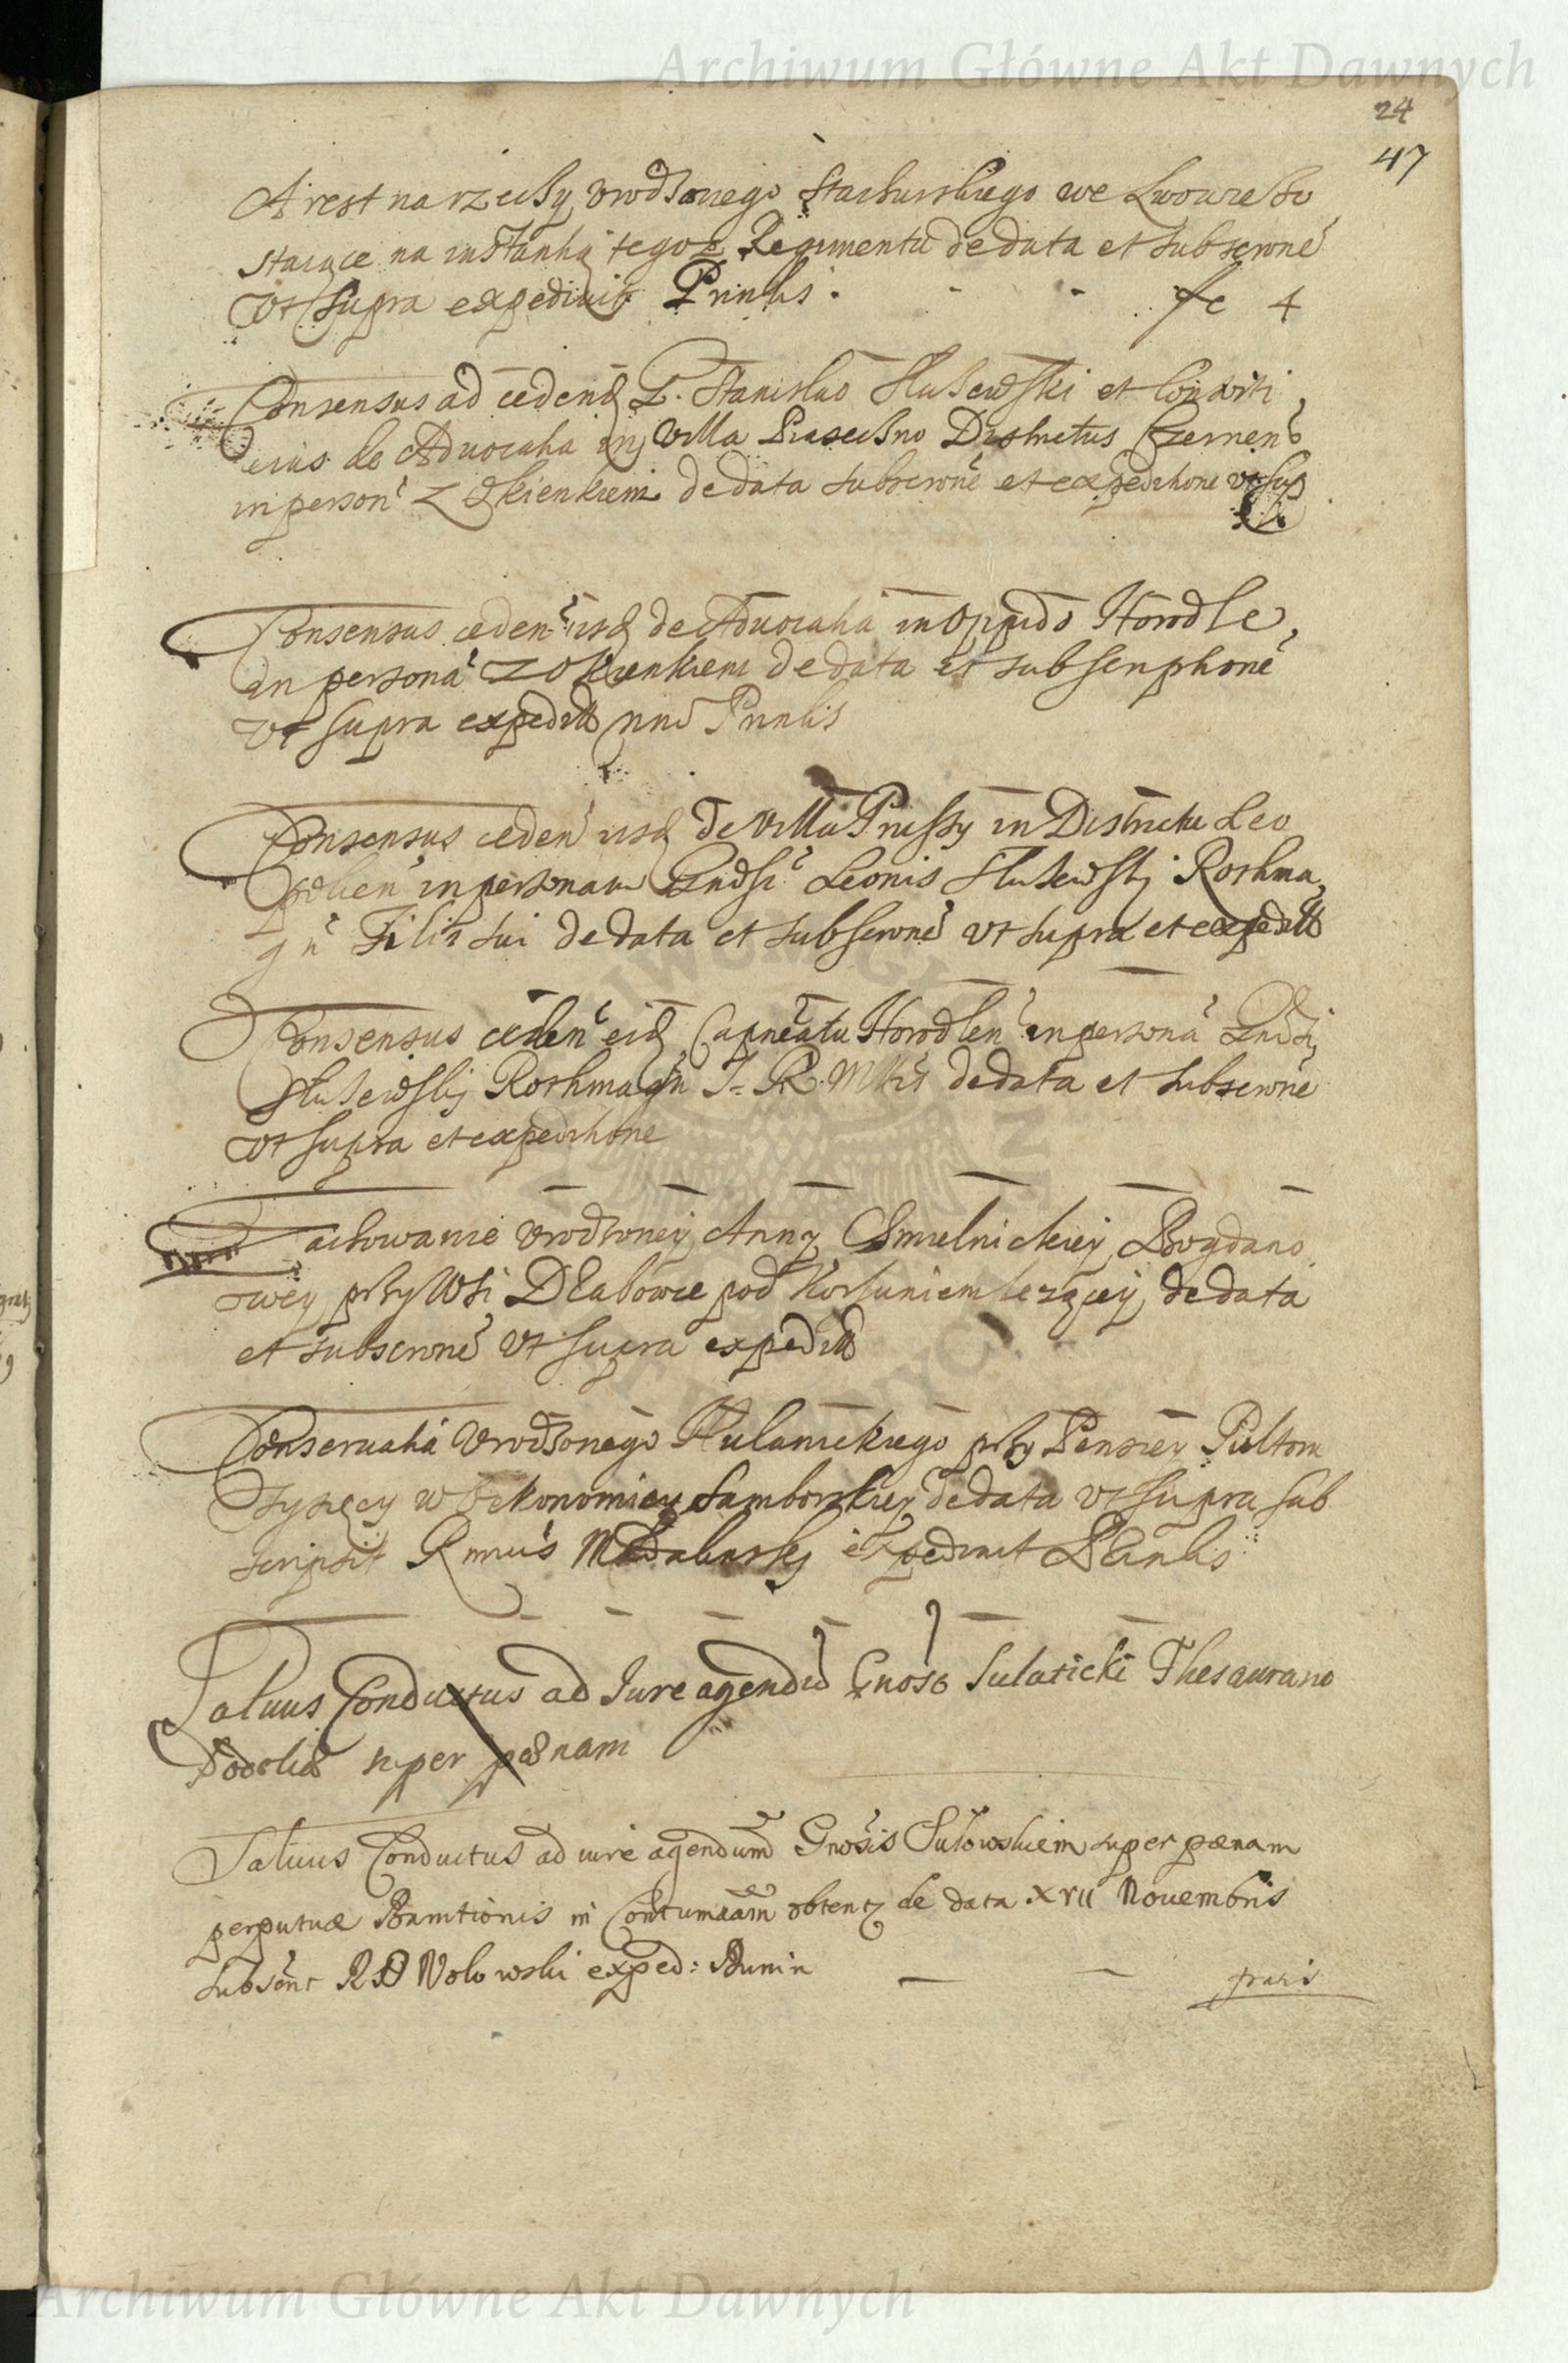 Archiwum Główne Akt Dawnych
24
47
Arest na rzeczy Vrodzonego Stachurskiego we Lwowie zo
staiące na instantią tegoz Regimentu de data et subscrone
vt supra expedivit Prinlis. fc 4
Consensus ad cedend G. Stanislao Służewski et Consorti
eius de Advocatia in Villa Piaseczno Districtus Czernen
in person z Okienkiem de data subscrone et expeditione vt sup
Consensus ceden iisd de Advocatia in Oppido Horodle
in persona z Okienkiem de data et subscriptione
vt supra expedit Prinlis
Consensus ceden iisd de Villa Prussy in Districtu Leo
polien in personam Gndsi Leonis Służewski Rothma
gri Filii sui de data et subscrone vt supra et expedit
Consensus ceden eid Capneatu Horodlen in persona Gndsi
Służewskij Rothmagri S. R. Mttis de data et subscrone
vt supra et expeditione
Zachowanie Vrodzoney Anny Chmielnickiey Bogdano
wey przy Wsi Dłabowce pod Korsuniem lezącey de data
et subscrone vt supra expedit
Conservatia Vrodzonego Hulanickiego przy Pensiey Pułtora
Tysięcy w Oekonomiey Samborskiey de data vt supra sub
scripsit Rmus Madalinskij expedivit Prinlis
Salvus Conductus ad Iure agendu Gnoso Sulaticki Thesaurario
Podoliæ super pænam
Salvus Conductus ad iure agendum Gnosis Sułowskiem super pænam
perpetuæ Bannitionis in Contumaciam obtent de data XVII Novembris
subscrt RD Wołowski exped: Dunin
gratis
Archiwum Główne Akt Dawnych